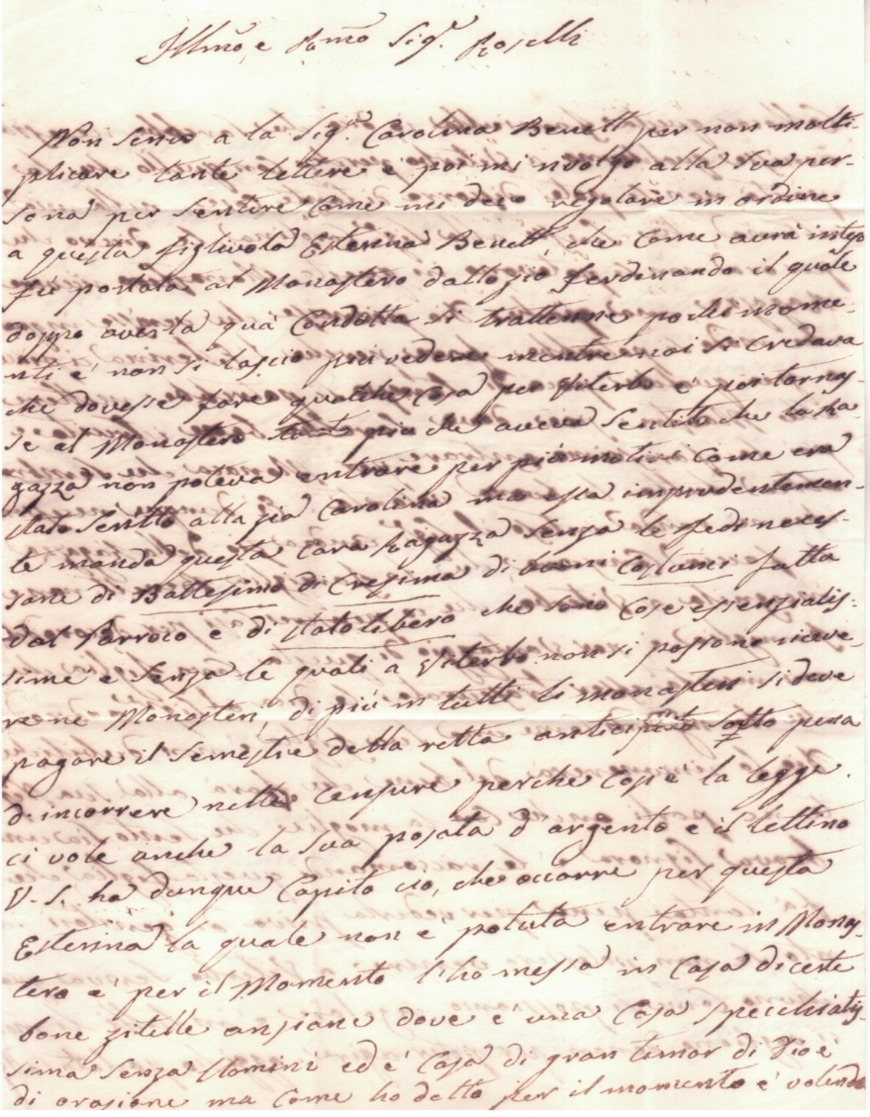 Illmo e Pamo Sigr. Roselli
Non scrivo a la Siga. Carolina Benell per non molti-
plicare tante lettere e poi mi rivolgo alla sua per-
sona per sentire come mi devo regolare in ordine
a questa figlivola Esterina Benell che come avra inteso
fu portata al Monastero dallo zio Ferdinando il quale
doppo averla qua condotta si trattenne pochi mome-
nti e non si lascio piu vedere mentre noi si credava
che dovesse fare qualche cosa per Viterbo e poi tornas-
se al Monastero piu che aveva sentito che la Ra
gazza non poteva entrare per piu motivi come era
stato scritto alla zia Carolina ma essa imprudentemen-
te manda questa cara Ragazza senza le fedi neces-
sarie di Battesimo di Cresima di buoni Costumi fatta
dal Parroco e di stato libero che sono cose essenzialis-
sime e senza le quali a Viterbo non si possono riceve-
re ne Monasteri, di piu in tutti li monasteri si deve
pagare il semestre della retta anticipato sotto pena
d'incorrere nelle Censure perche cosi e la legge.
ci vole anche la sua posata d argento e il lettino
V. S. ha dunque capito cio, che occorre per questa
Esterina la quale non e potuta entrare in Monas-
tero e per il Momento l'ho messa in Casa di certe
bone zitelle anziane dove e una Casa specchiatis-
sima senza Uomini ed e Casa di gran timor di Dio e
di orazione ma come ho detto per il momento e volendo